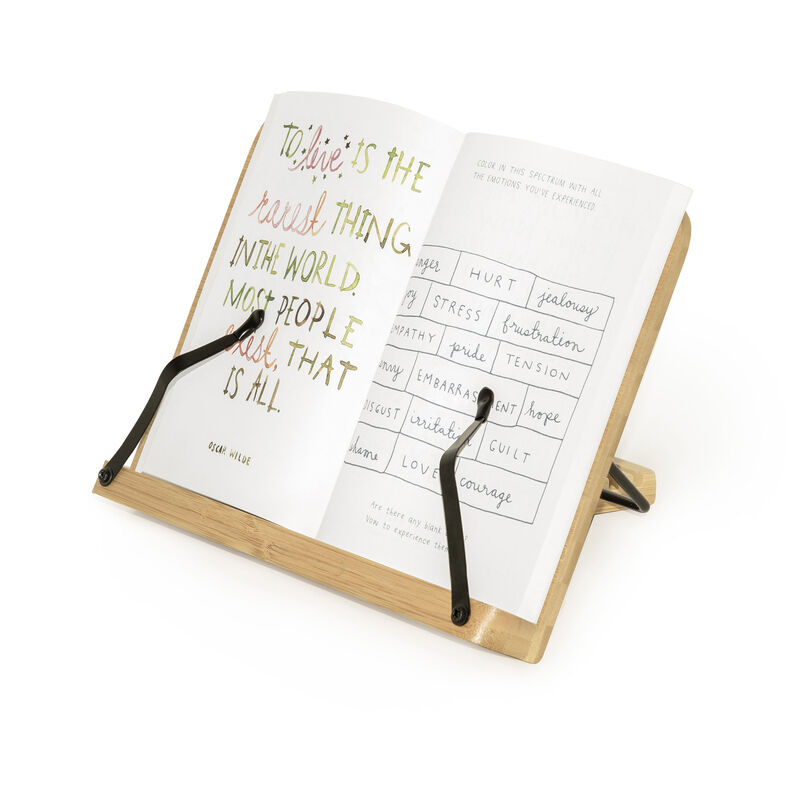 TO live IS THE
rarest THING
IN THE WORLD.
MOST PEOPLE
exist, THAT
IS ALL.
OSCAR WILDE
COLOR IN THIS SPECTRUM WITH ALL
THE EMOTIONS YOU'VE EXPERIENCED.
HURT jealousy
STRESS frustration
pride TENSION
hope
DISGUST irritation GUILT
shame LOVE courage
Are there any blank
Vow to experience them